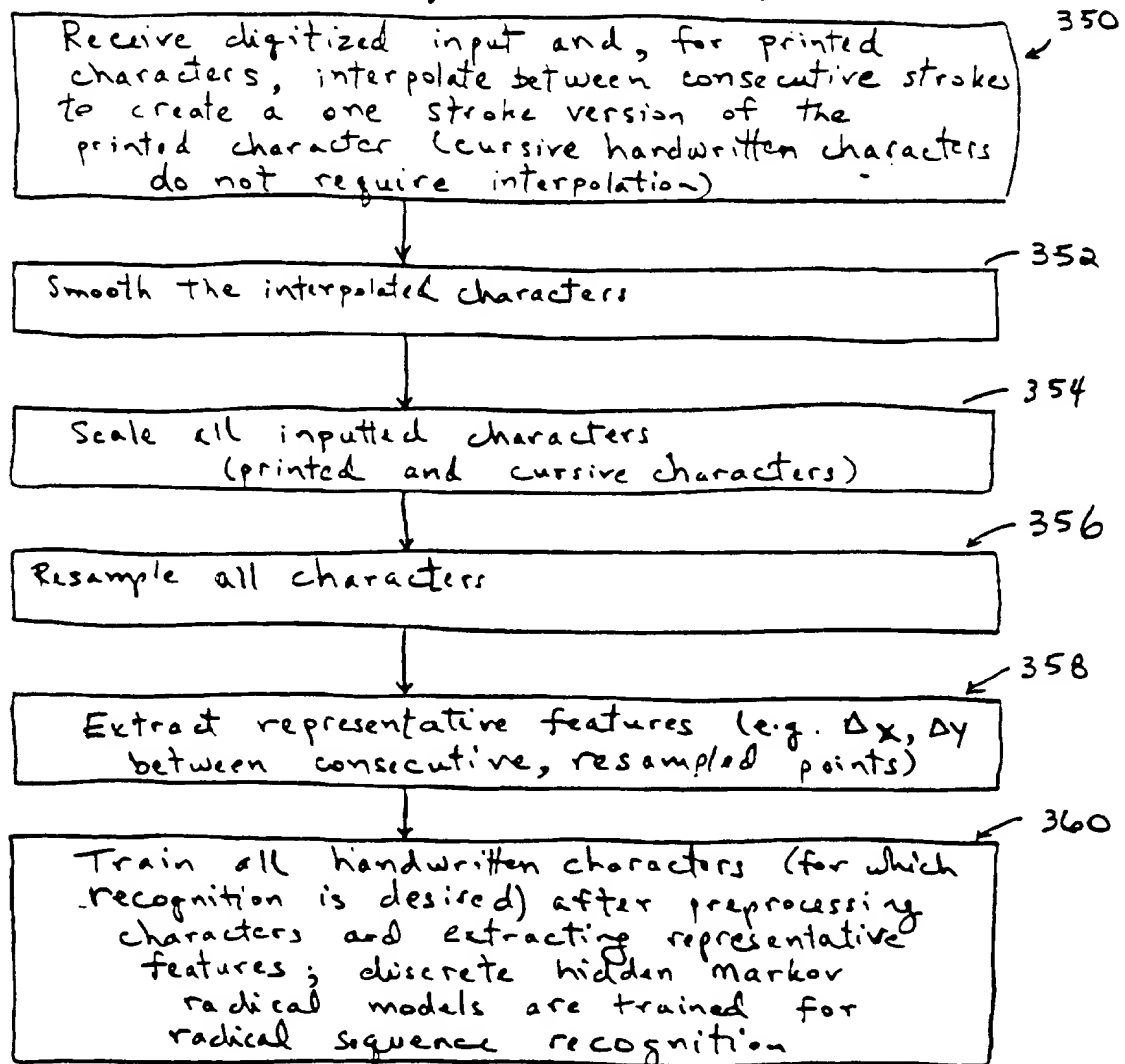 350
Receive digitized input and, for printed
characters, interpolate between consecutive strokes
to create a one stroke version of the
printed character (cursive handwritten characters
do not require interpolation)
352
Smooth the interpolated characters
354
Scale all inputted characters
(printed and cursive characters)
356
Resample all characters
358
Extract representative features (e.g. Δx, Δy
between consecutive, resampled points)
360
Train all handwritten characters (for which
recognition is desired) after preprocessing
characters and extracting representative
features; discrete hidden markov
radical models are trained for
radical sequence recognition